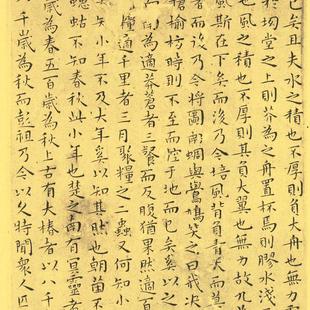 已矣且夫水之積也不厚則負大舟也無力
於坳堂之上則芥為之舟置杯焉則膠水淺
也風之積也不厚則其負大翼也無力故九
風斯在下矣而後乃今培風背負青天而莫
者而後乃今將圖南蜩與鷽鳩笑之曰我決
槍榆枋時則不至而控于地而已矣奚以之
為適莽蒼者三飡而反腹猶果然適百
糧適千里者三月聚糧之二蟲又何知小
矣小年不及大年奚以知其然也朝菌不
蟪蛄不知春秋此小年也楚之南有冥靈者
歲為春五百歲為秋上古有大椿者以八
千歲為秋而彭祖乃今以久特聞衆人匹